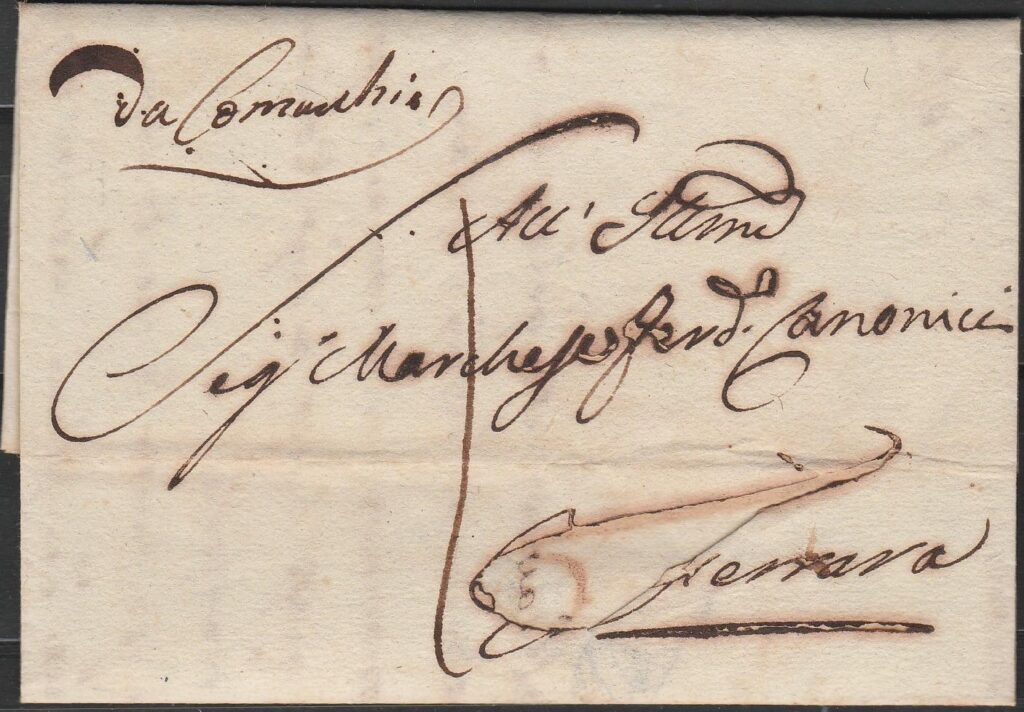 da Comacchio
All' Illmo
Sigr Marchese Ferdo. Canonici
Ferrara